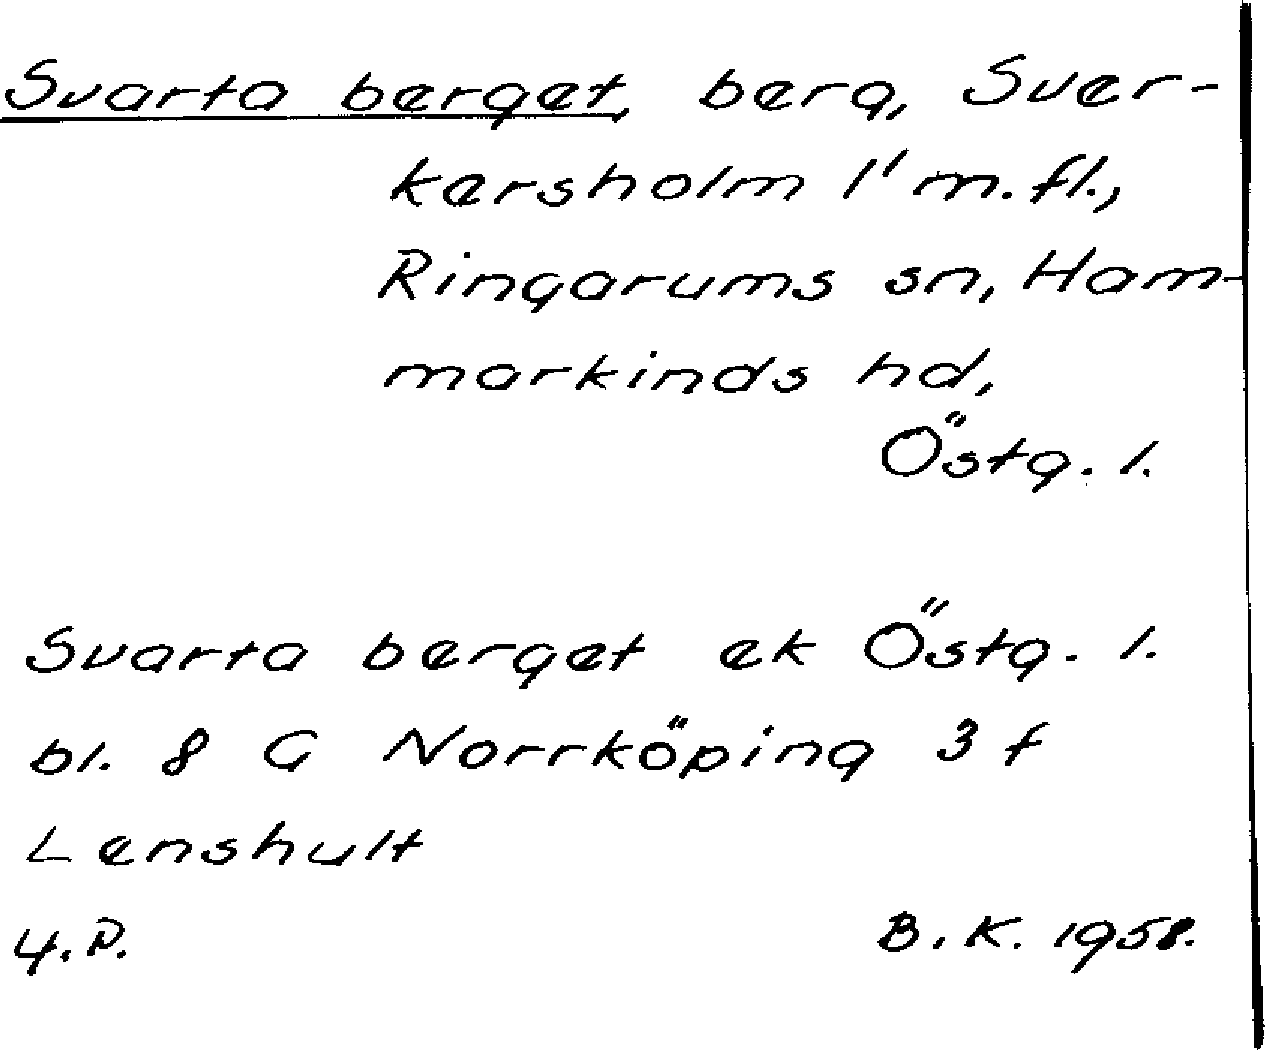 Svarta berget, berg, Sver-
kersholm 1' m.fl.,
Ringarums sn, Ham-
markinds hd,
Östg. l.
Svarta berget ek Östg. l.
bl. 8 G Norrköping 3 f
Lenshult
4.P.
B.K. 1958.